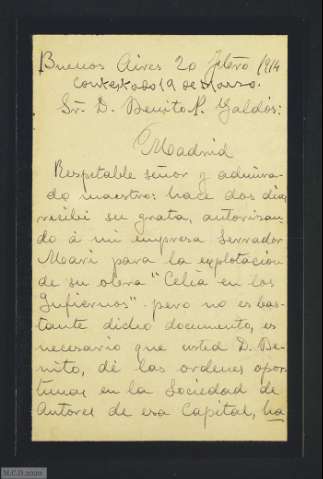 Buenos Aires 20 Febrero 1914
Contestado 19 de Marzo.
Sr. D. Benito P. Galdós:
Madrid
Respetable señor y admira-
do maestro: hace dos dias
recibi su grata, autorizan-
do á mi empresa Serrador
Mari para la explotacion
de su obra "Celia en los
Infiernos" pero no es bas-
tante dicho documento, es
necesario que usted D. Be-
nito, dé las ordenes opor-
tunas en la Sociedad de
Autores de esa Capital, ha